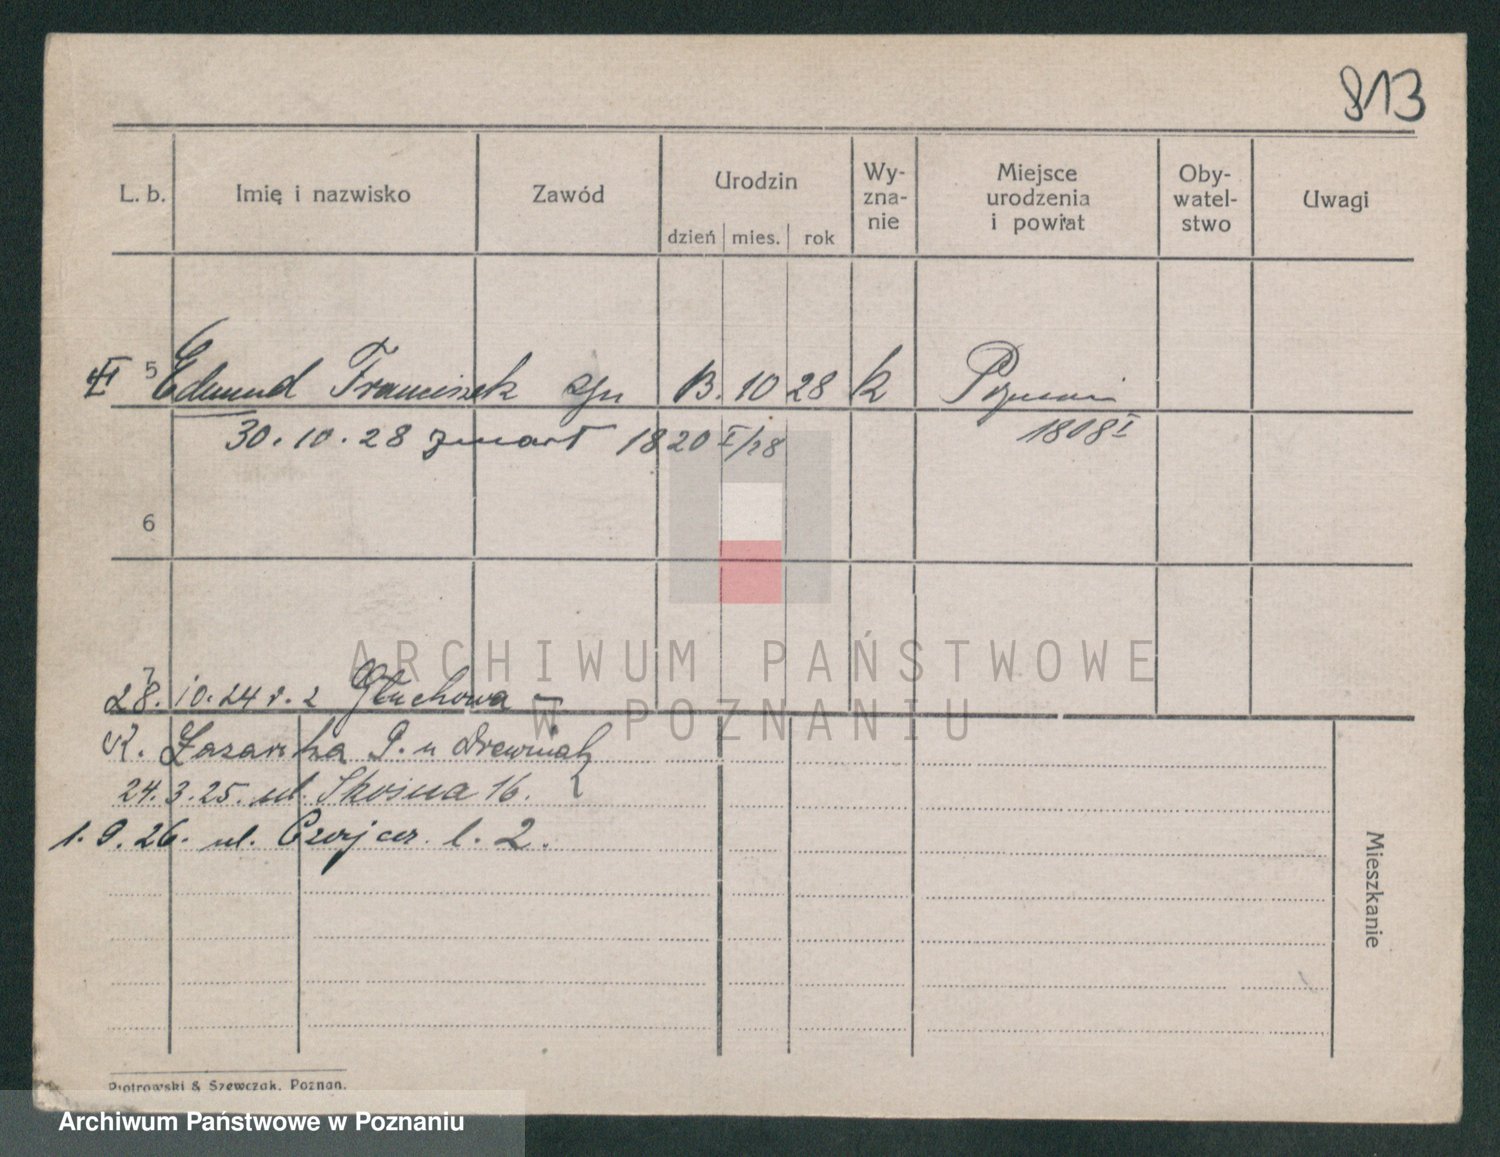 813
L. b. Imię i nazwisko Zawód Urodzin Wy-zna-nie Miejsce urodzenia i powiat Oby-watel-stwo Uwagi
dzień mies. rok
5 Edmund Franciszek syn 13. 10 28 k Poznań
30. 10. 28 zmarł 1820 I/28 1808 I
6
28. 10. 24 r. z Głuchowa
K. Łazarska P. u Drewniak
24. 3. 25. ul. Skośna 16.
1. 9. 26. ul. l. 2.
Mieszkanie
Piotrowski & Szewczak, Poznań.
ARCHIWUM PAŃSTWOWE
W POZNANIU
Archiwum Państwowe w Poznaniu